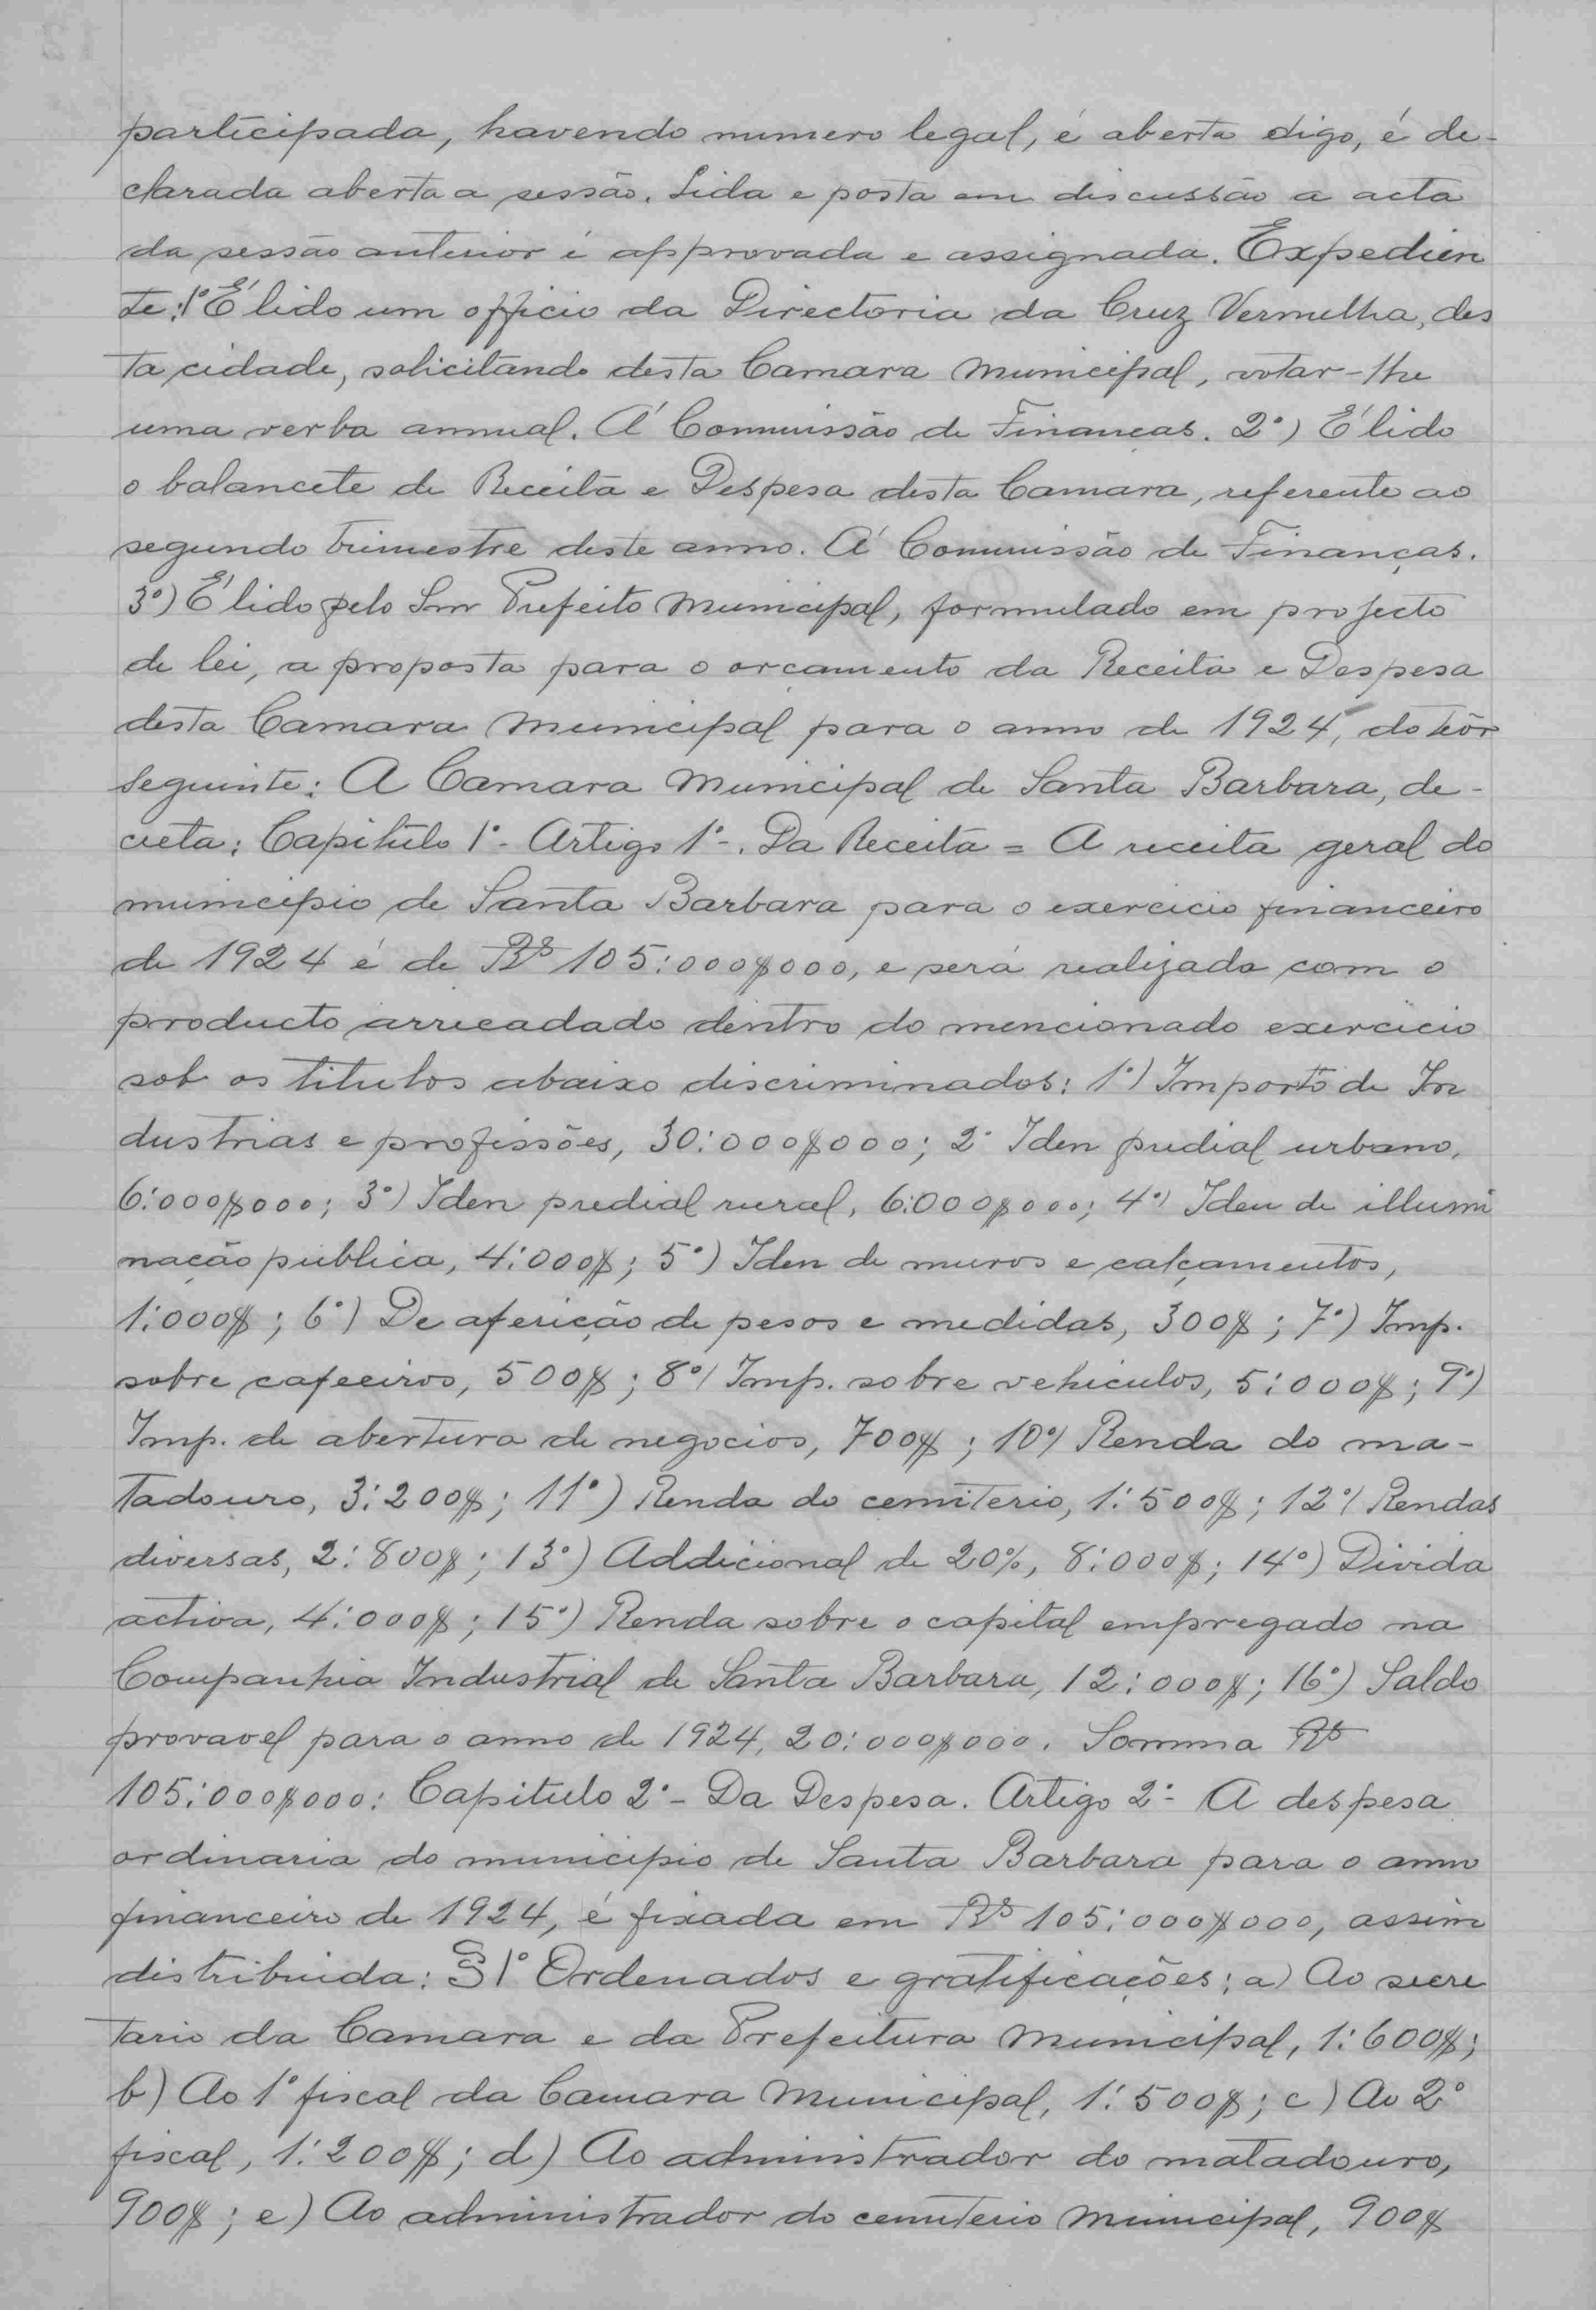 participada, havendo numero legal, é aberta digo, é de-
clarada aberta a sessão. Lida e posta em discussão a acta
da sessão anterior é approvada e assignada. Expedien
te: 1º É lido um officio da Directoria da Cruz Vermelha, des
ta cidade, solicitando desta Camara Municipal, votar-lhe
uma verba annual. Á Commissão de Finanças. 2º) É lido
o balancete de Receita e Despesa desta Camara, referente ao
segundo trimestre deste anno. Á Commissão de Finanças.
3º) É lido pelo Snr Prefeito Municipal, formulado em projecto
de lei, a proposta para o orçamento da Receita e Despesa
desta Camara Municipal para o anno de 1924, do teôr
seguinte: A Camara Municipal de Santa Barbara, de-
creta: Capitulo 1º - Artigo 1º -. Da Receita = A receita geral do
municipio de Santa Barbara para o exercicio financeiro
de 1924 é de Rs 105:000$000, e será realizada com o
producto arrecadado dentro do mencionado exercicio
sob os titulos abaixo discriminados: 1º) Imposto de In
dustrias e profissões, 30:000$000; 2º Iden predial urbano,
6:000$000; 3º) Iden predial rural, 6:000$000; 4º) Iden de illumi
nação publica, 4:000$; 5º) Iden de muros e calçamentos,
1:000$; 6º) De aferição de pesos e medidas, 300$; 7º) Imp.
sobre cafeeiros, 500$; 8º) Imp. sobre vehiculos, 5:000$; 9º)
Imp. de abertura de negocios, 700$; 10º) Renda do ma-
tadouro, 3:200$; 11º) Renda do cemiterio, 1:500$; 12º) Rendas
diversas, 2:800$; 13º) Addicional de 20%, 8:000$; 14º) Divida
activa, 4:000$; 15º) Renda sobre o capital empregado na
Companhia Industrial de Santa Barbara, 12:000$; 16º) Saldo
provavel para o anno de 1924, 20:000$000. Somma Rs
105:000$000: Capitulo 2º - Da Despesa. Artigo 2º - A despesa
ordinaria do municipio de Santa Barbara para o anno
financeiro de 1924, é fixada em Rs 105:000$000, assim
distribuida: § 1º Ordenados e gratificações: a) Ao secre
tario da Camara e da Prefeitura Municipal, 1:600$;
b) Ao 1º fiscal da Camara Municipal, 1:500$; c) Ao 2º
fiscal, 1:200$; d) Ao administrador do matadouro,
900$; e) Ao administrador do cemiterio Municipal, 900$